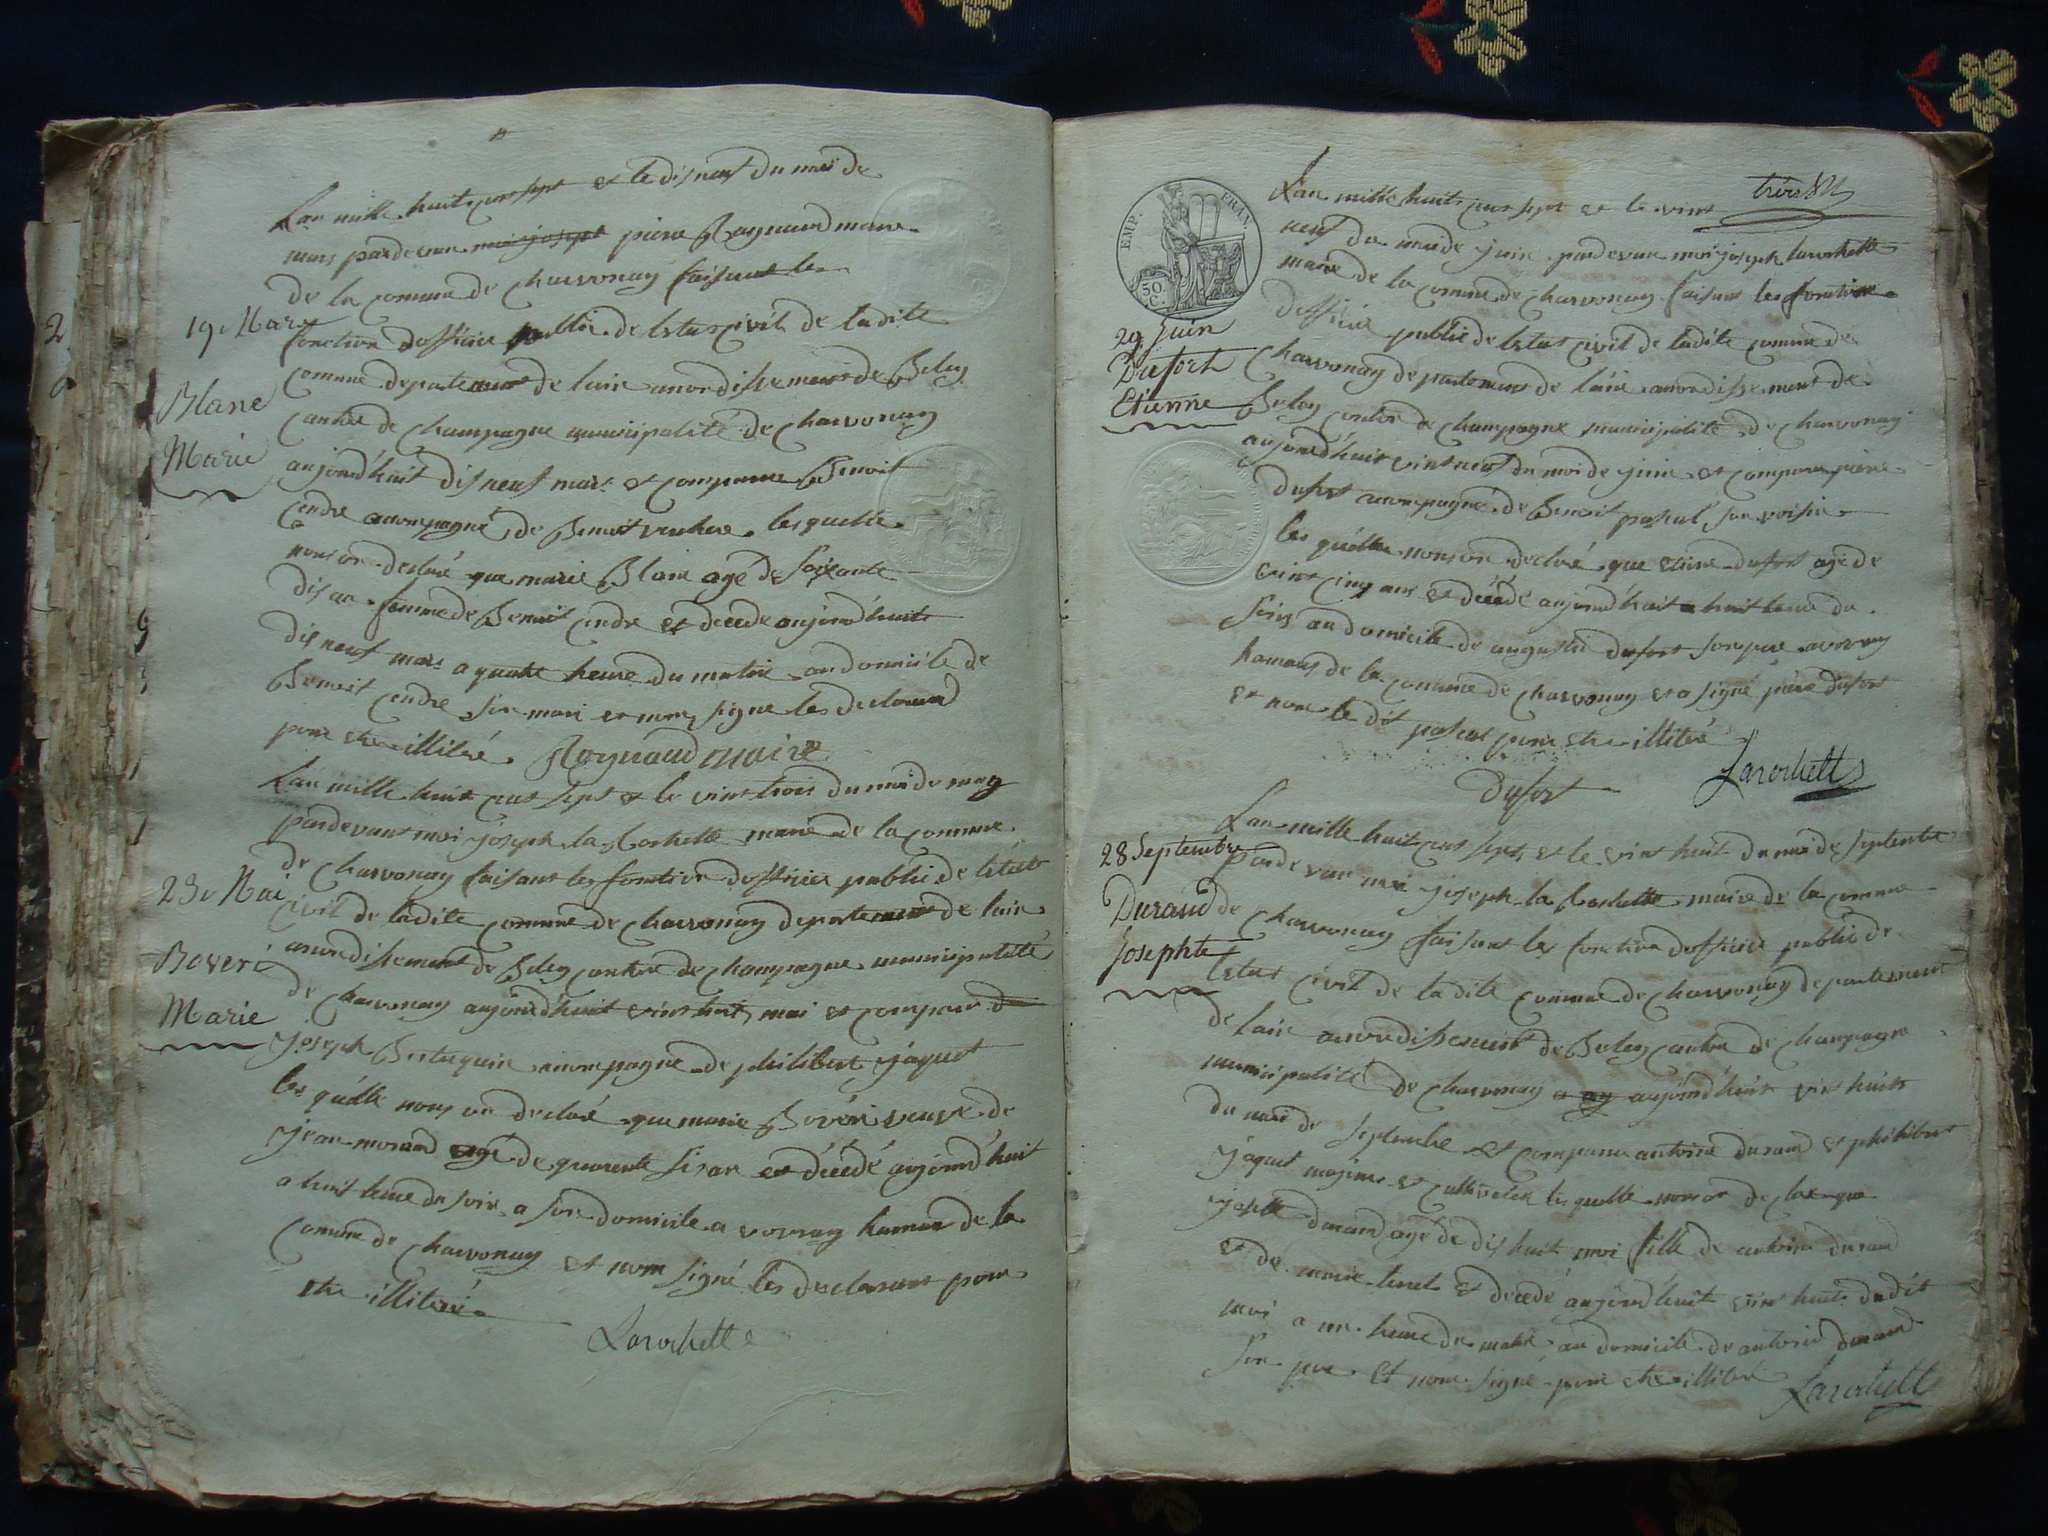 Lan mille huit cent sept et le dis neuf du moi de
mars pardevan moi joseph piere Raynaud maire
de la comune de charvonay faisant les
19 Mars
fonction dofficier public de letat civil de ladite
comune departement de lain arondissement de Beley
Blanc
canton de champagne municipalité de charvonay
Marie
aujourdhuit dis neuf mars et comparu Benoit
cendre acompagné de Benoit les quelle
nous on declaré que marie Blanc agé de soixante
dis an femme de Benoit cendre et decede aujourdhuit
dis neuf mars a quatre heure du matin au domicile de
Benoit cendre son mari et nom signe les declarand
pour etre illiteré Raynaud maire
Lan mille huit cent sept et le vint trois du moi de may
pardevant moi joseph la Rochette maire de la comune
de charvonay faisant les fonction dofficier public de letat
23 Mai
civil de ladite comune de charvonay departement de lain
arondissement de Beley canton de champagne municipalité
Boveri
de charvonay aujourdhuit vint mai et comparu
Marie
joseph acompagné de philibert jaquet
les quelle nous on declaré que marie Bovéri veuve de
jean morand agé de quarente sis an et décédé aujourdhuit
a huit heure du soir a son domicile a vovray hamau de la
comune de charvonay et nom signé les declarant pour
etre illiteré
Larochette
EMP. FRAN.
50 C.
Lan mille huit cent sept et le vint
neuf du moi de juin pardevan moi joseph larochette
maire de la comune de charvonay faisant les fonction
dofficier public de letat civil de ladite comune de
29 Juin
Dufort
charvonay departement de lain arondissement de
Etienne
Beley canton de champagne municipalité de charvonay
aujourdhuit vint neuf du moi de juin et comparu piere
dufort acompagné de Benoit pascal son voisin
les quelle nous on declaré que etiene dufort agé de
vint cinq ans et décédé aujourdhuit a huit heure du
soir au domicile de augustin dufort son pere a vovray
hamaus de la comune de charvonay et a signé piere dufort
et nom le dit pascal pour etre illiteré
Larochette
dufort
Lan mille huit cent sept et le vint huit du moi de septembre
28 Septembre
pardevan moi joseph la Rochette maire de la comune
Durand
de charvonay faisant les fonction dofficier public de
Josephte
letat civil de ladite comune de charvonay departement
de lain arondissement de Beley canton de champagne
municipalité de charvonay aujourdhuit vint huit
du moi de septembre et comparu antoine durand et philibert
jaquet et cultivateur les quelle nous on declaré que
josette durand agé de dis huit moi fille de antoine durand
et de marie et decedé aujourdhuit vint huit dudit
moi a une heure du matin au domicile de antoine durand
son pere et nom signé pour etre illiteré
Larochette